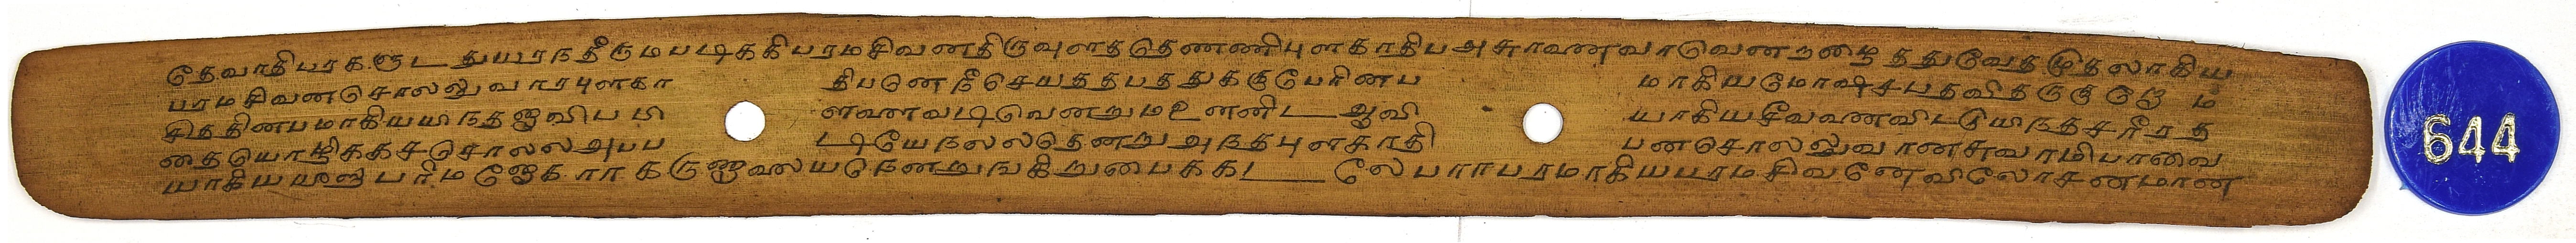 தெவாதிபரக கூட துயரநதீருமபடிககிபரமசிவனதிருவுளததெணணிபுளகாதிப அசுரவணவாடுவெனறழைததுவேதமுதலாகிய
பரமசிவனசொலலுவாரபுளகா திபனெநீசெயததபததுககுபேரினப மாகியமோஷசபதவிதருகுறெ ம
சிததினபமாகியயிநதஜவிபமி ளவளவடிவெனறுமஉனனிட ஆவி யாகியசீவவணவிடடுயிநதசரீரத
தையொழிககசசொலலஅபப டியேநலலதெனறுஅநதபுளகாதி பனசொலலுவானசுவாமிபாவை
யாகிய பரிம ஜெக ராககுஜவலயநெனறுஙகிறுபைகக லே பராபரமாகியபரமசிவனேவிலோசனமான
644